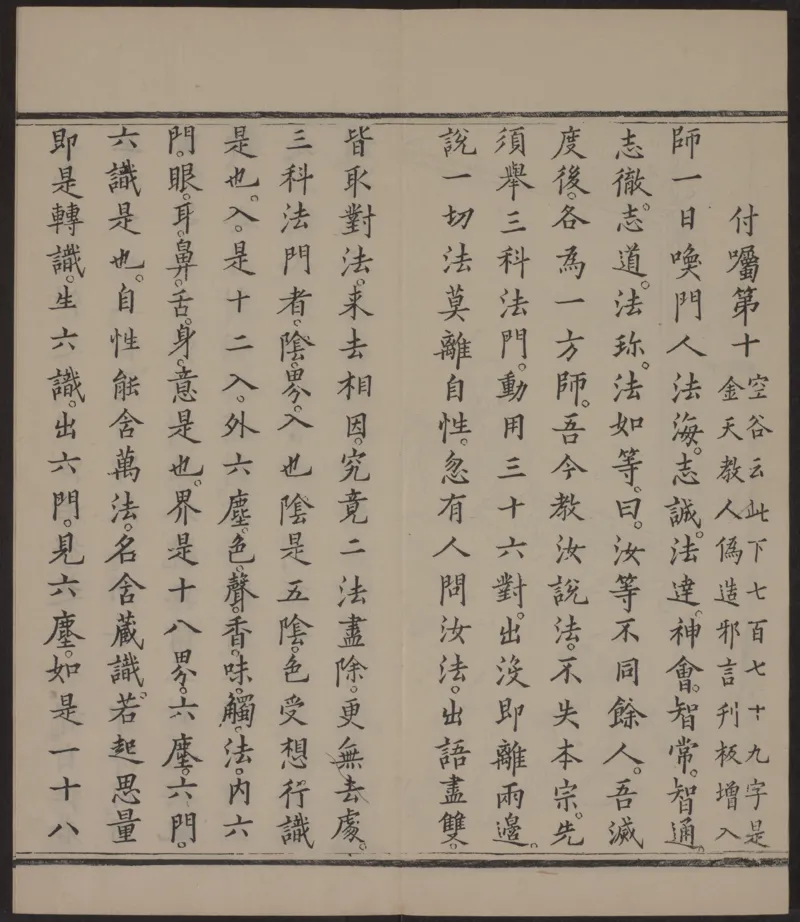 付囑第十
空谷云此下七百七十九字是
金天教人偽造邪言刊板增入
師一日喚門人法海。志誠。法達。神會。智常。智通。
志徹。志道。法珍。法如等。曰。汝等不同餘人。吾滅
度後。各為一方師。吾今教汝說法。不失本宗。先
須舉三科法門。動用三十六對。出沒即離兩邊。
說一切法莫離自性。忽有人問汝法。出語盡雙。
皆取對法。来去相因。究竟二法盡除。更無去處。
三科法門者。陰。界。入也陰是五陰。色受想行識
是也。入。是十二入。外六塵。色。聲。香。味。觸。法。內六
門。眼。耳。鼻。舌。身。意是也。界是十八界。六塵。六門。
六識是也。自性能含萬法。名含藏識。若起思量
即是轉識。生六識。出六門。見六塵。如是一十八